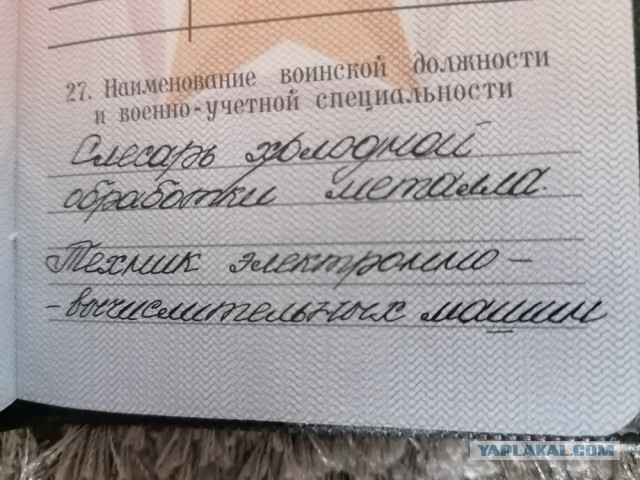 27. Наименование воинской должности
и военно-учетной специальности
Слесарь холодной
обработки металла.
Техник электронно-
-вычислительных машин
YAPLAKAL.COM